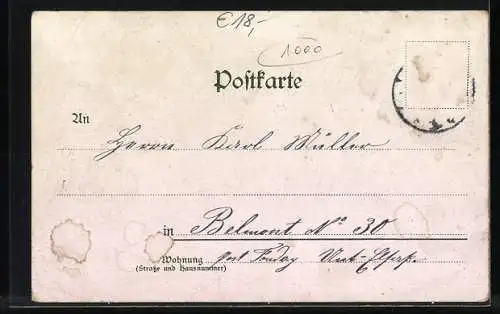 €18,-
1000
Postkarte
An
Herrn Karl Müller
in Belmont No 30
Wohnung post Fouday Unt-Elsaß.
(Straße und Hausnummer)